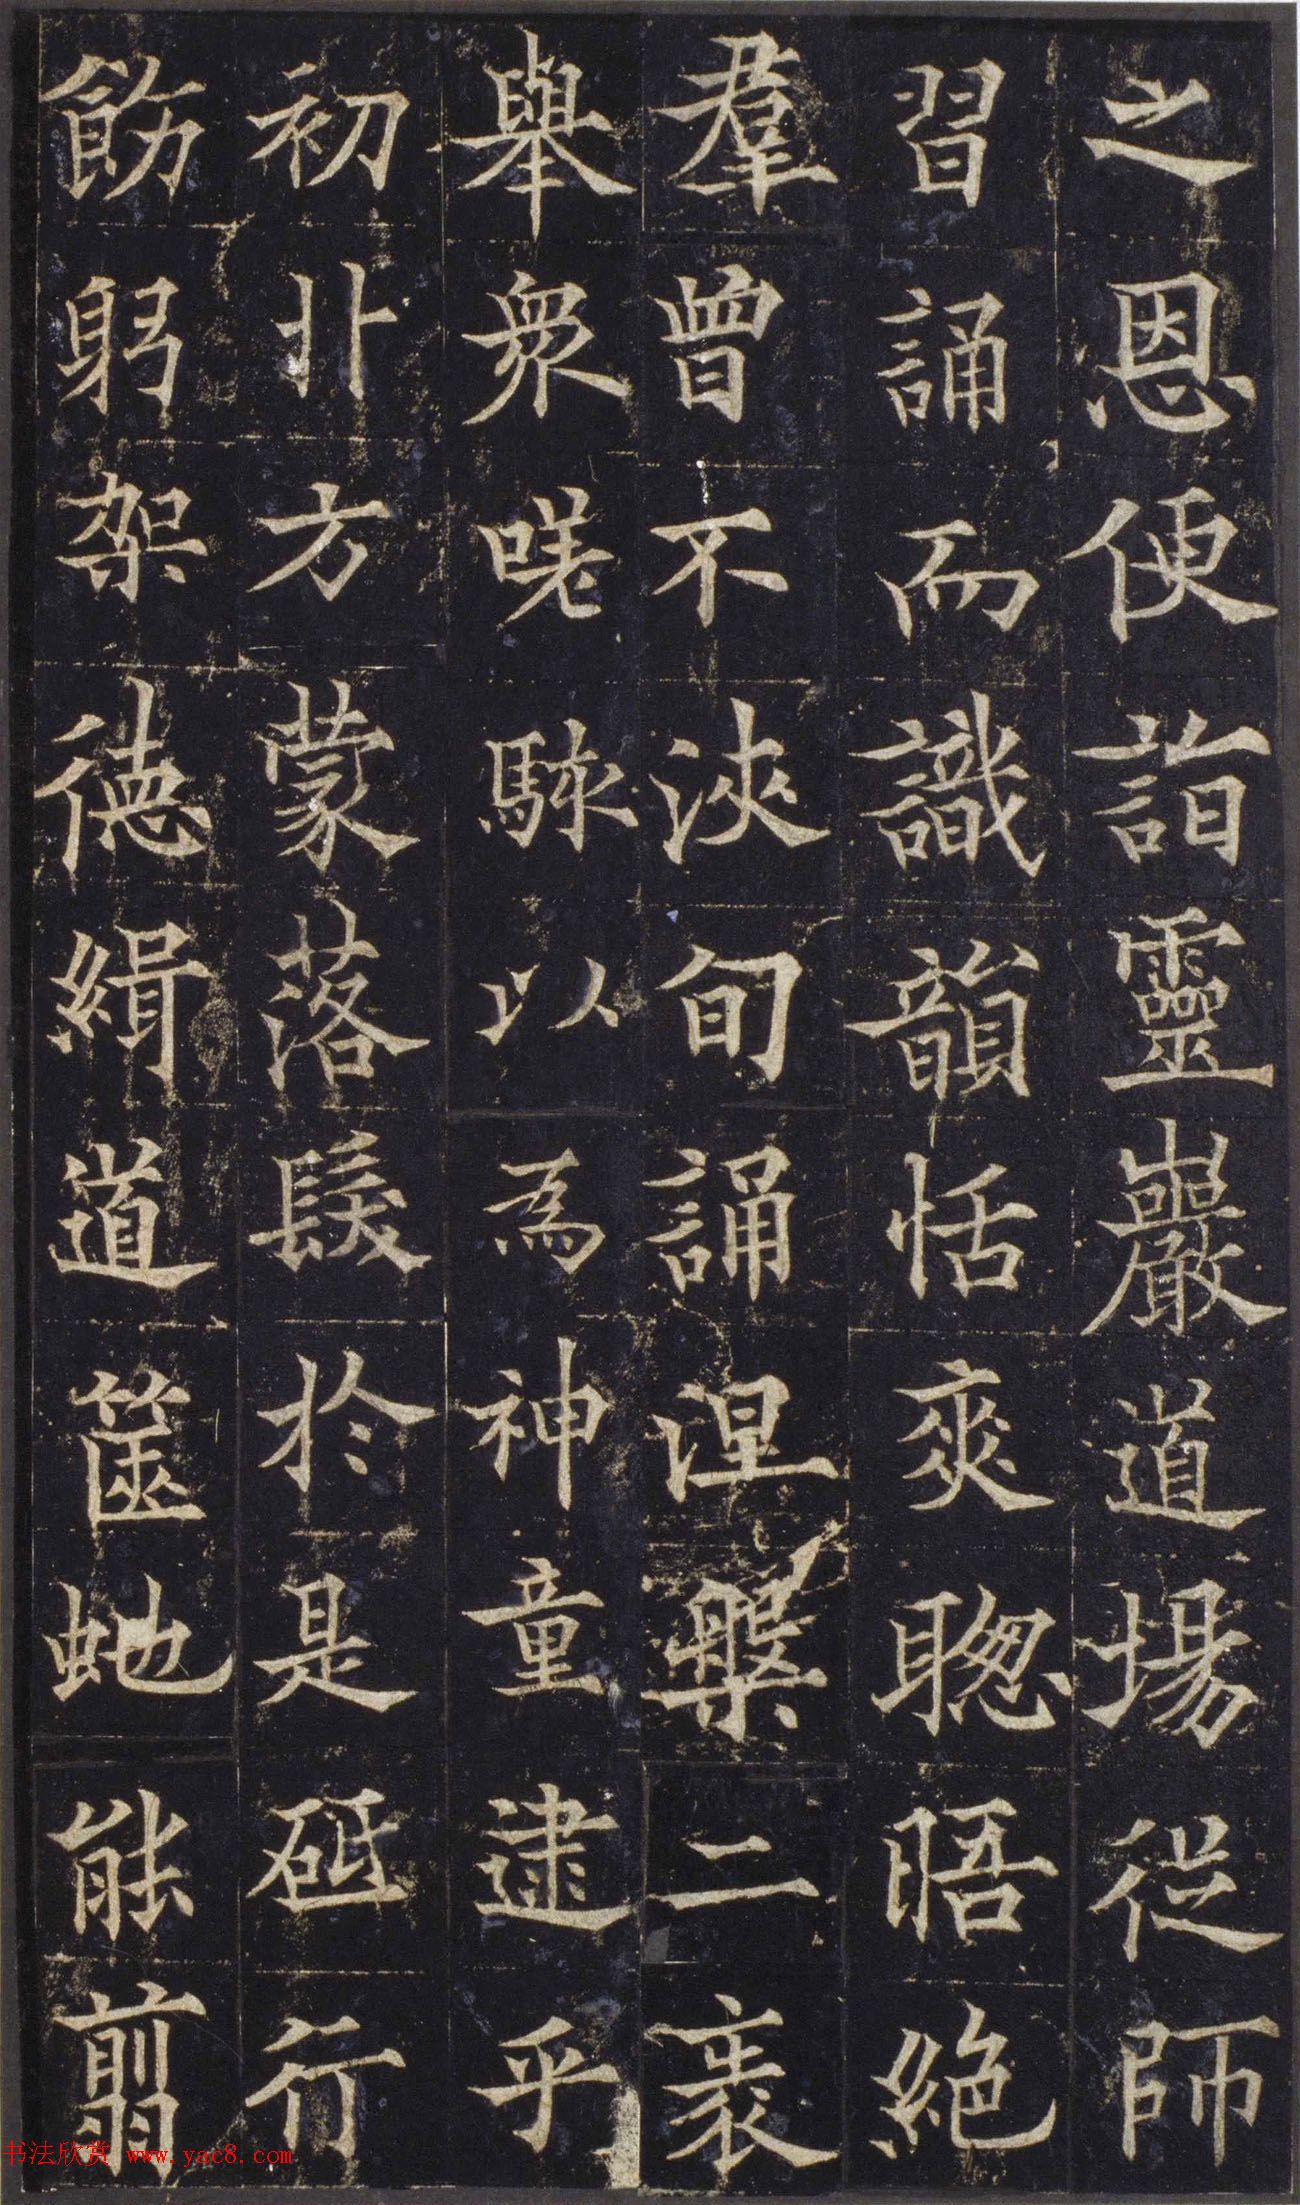 之恩便詣靈巖道場從師
習誦而識韻恬爽聰晤絶
羣曾不浹旬誦涅槃二袠
舉衆嗟駭以為神童逮乎
初丱方蒙落髮於是砥行
飭躬架德緝道篋虵能翦
书法欣赏 www.yac8.com